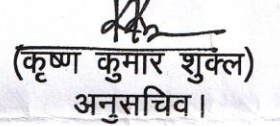 (कृष्ण कुमार शुक्ल)
अनुसचिव।